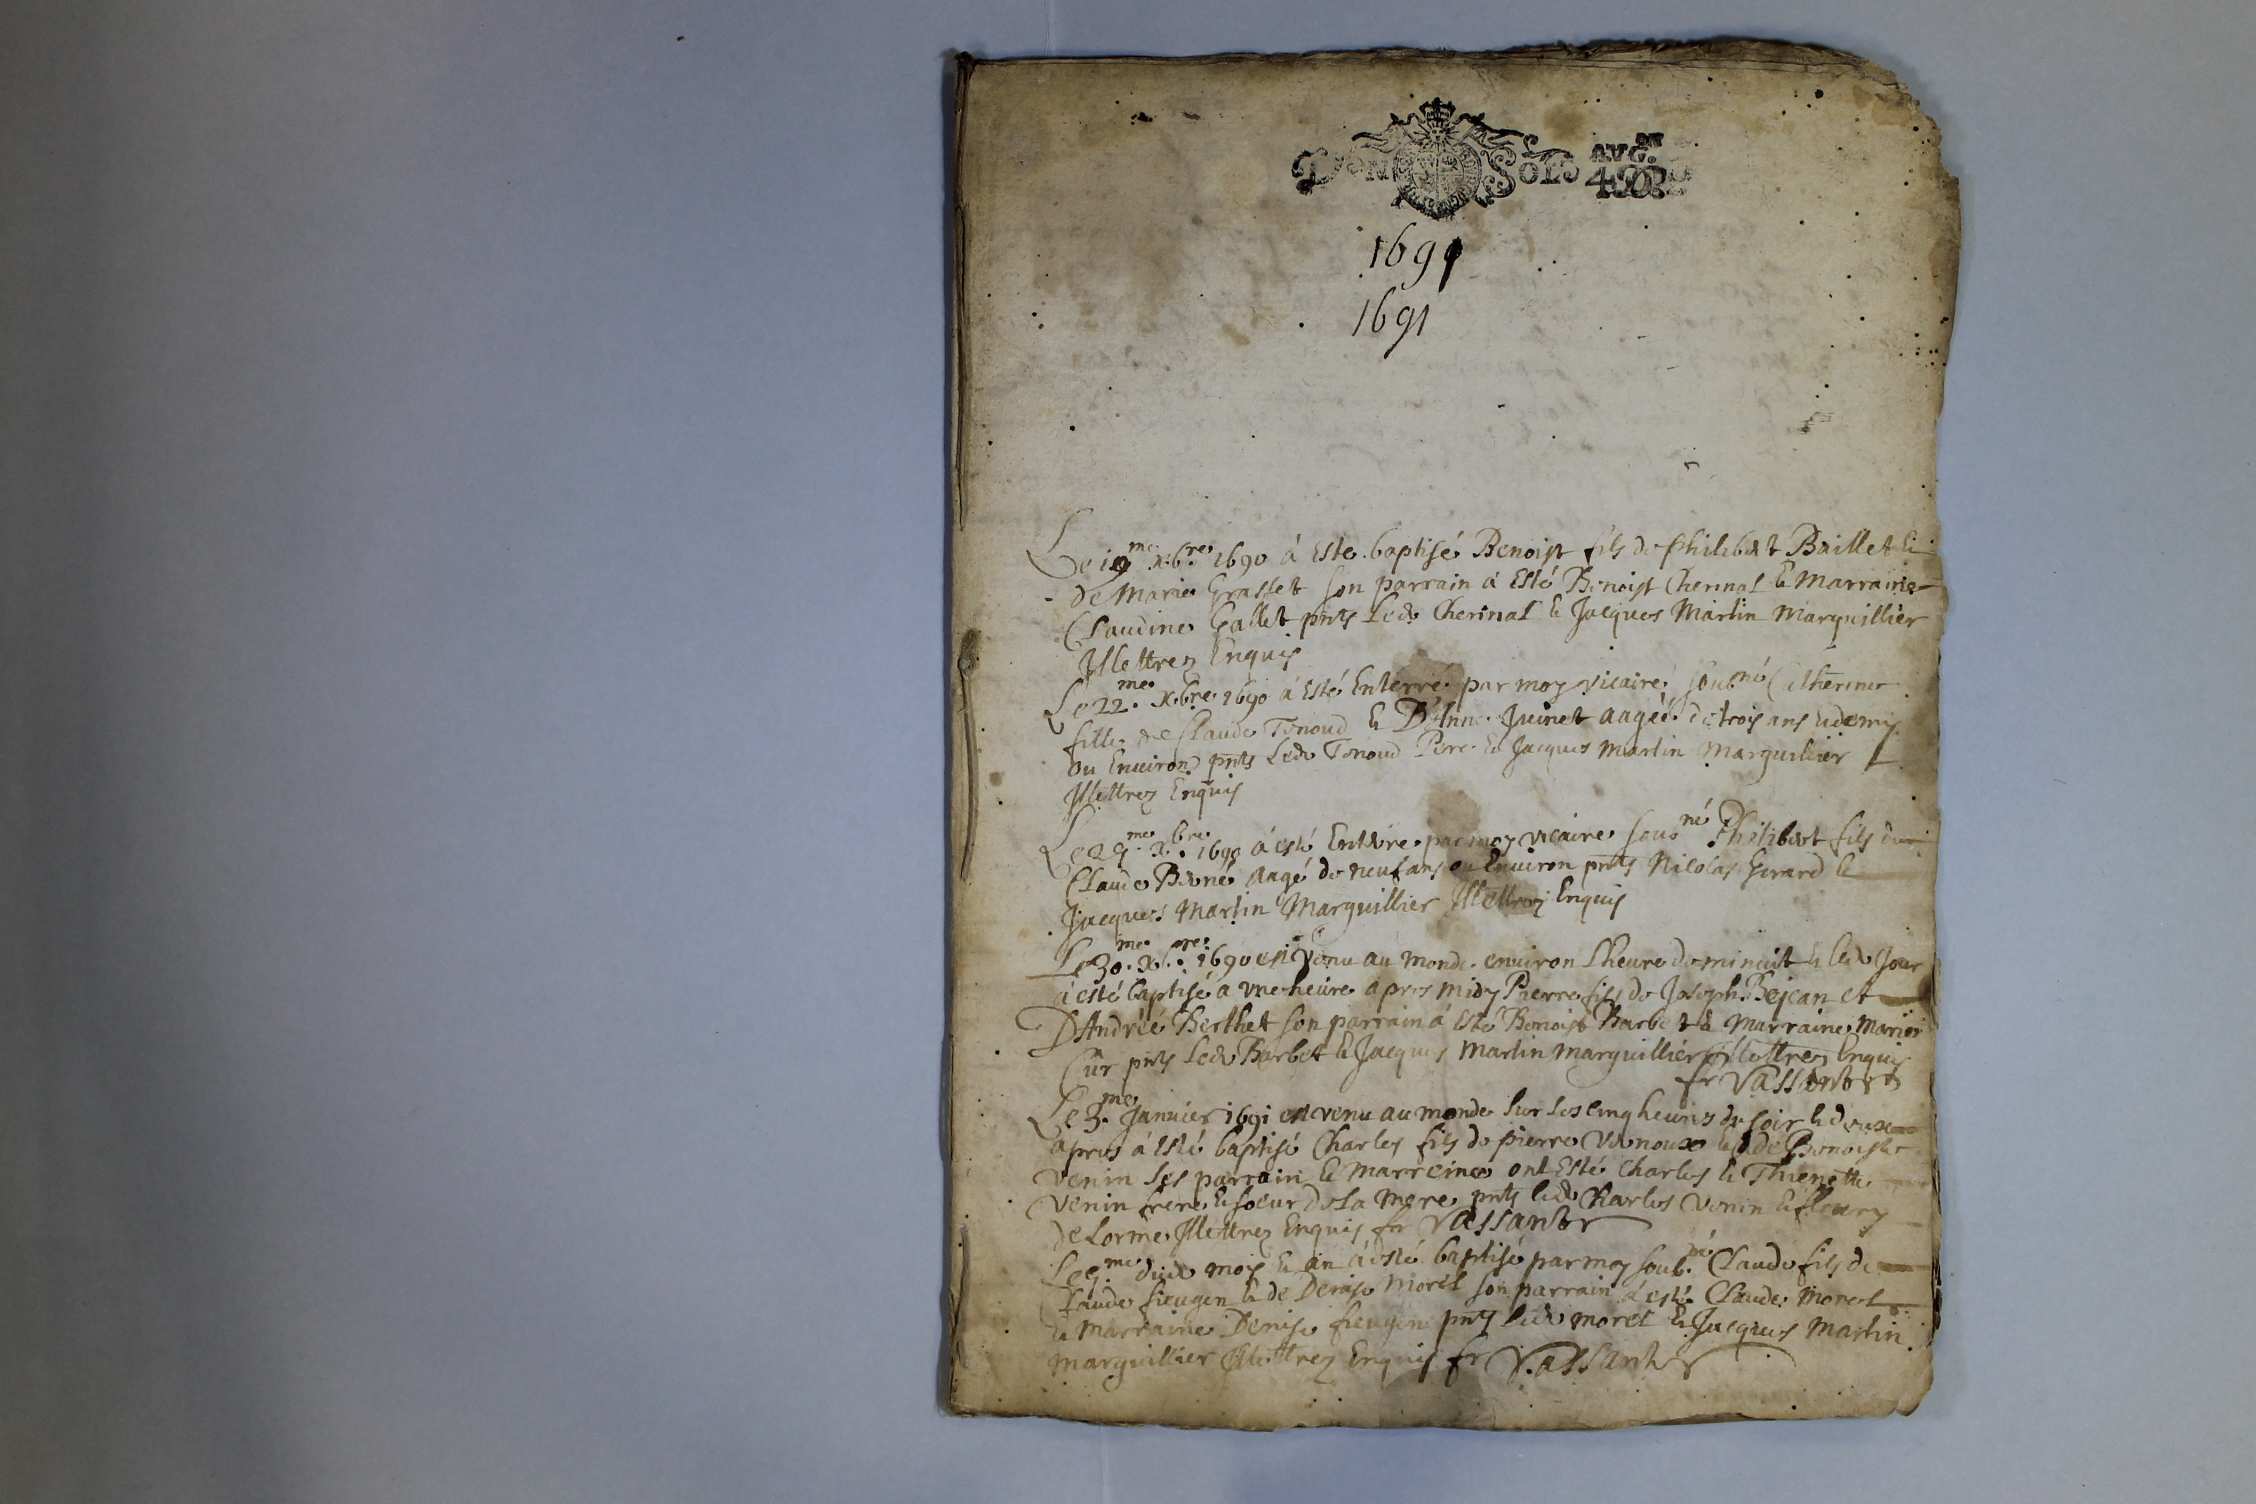 DEN SOLS AVG.ON
1691
1691
Le 19me xbre 1690 à Esté baptisé Benoist fils de Philibert Baillet &
de Marie Grasset son parrain à Esté Benoist Cherinal & Marraine
Claudine Gallet pnts Ledt Cherinal & Jacques Martin Marguillier
Illettrez Enquis
Le 22me xbre 1690 à Esté Enterré par moy vicaire soubné Catherine
fille de Claude Tonoud & D'Anne Juinet aagée de trois ans & demis
ou Environ pnts Ledt Tonoud Pere & Jacques Martin Marguillier
Illettrez Enquis
Le 29me xbre 1690 à esté Enterré par moy vicaire sousné Philibert fils de
Claude Berné aagé de neuf ans ou Environ pnts Nicolas Girard &
Jacques Martin Marguillier Illettrez Enquis
Le 30me xbre 1690 est venu au monde environ Lheure de minuit & ledt Jour
à esté baptisé a une heure apres midy Pierre fils de Joseph Bejean et
D'Andréé Berthet son parrain à Esté Benoist Barbet & Marraine Marie
Cur pnts Ledt Barbet & Jacques Martin Marguillier Illettrez Enquis
fr Vassant
Le 3me Janvier 1691 est venu au monde sur les cinq heures du soir & deux
apres à Esté baptisé Charles fils de pierre Vernoux & de Benoiste
Venin ses parrain & Marreine ont Esté Charles & Thienette
Venin frere & soeur de La Mere pnts ledt Charles Venin & fleury
de Lorme Illettrez Enquis fr Vassant
Le 9me dudt mois & an à esté baptisé par moy soubné Claude fils de
Claude fieugen & de Denise Morel son parrain à esté Claude Morel
& Marraine Denise fieugen pnts ledt Morel & Jacques Martin
Marguillier Illettrez Enquis fr Vassant